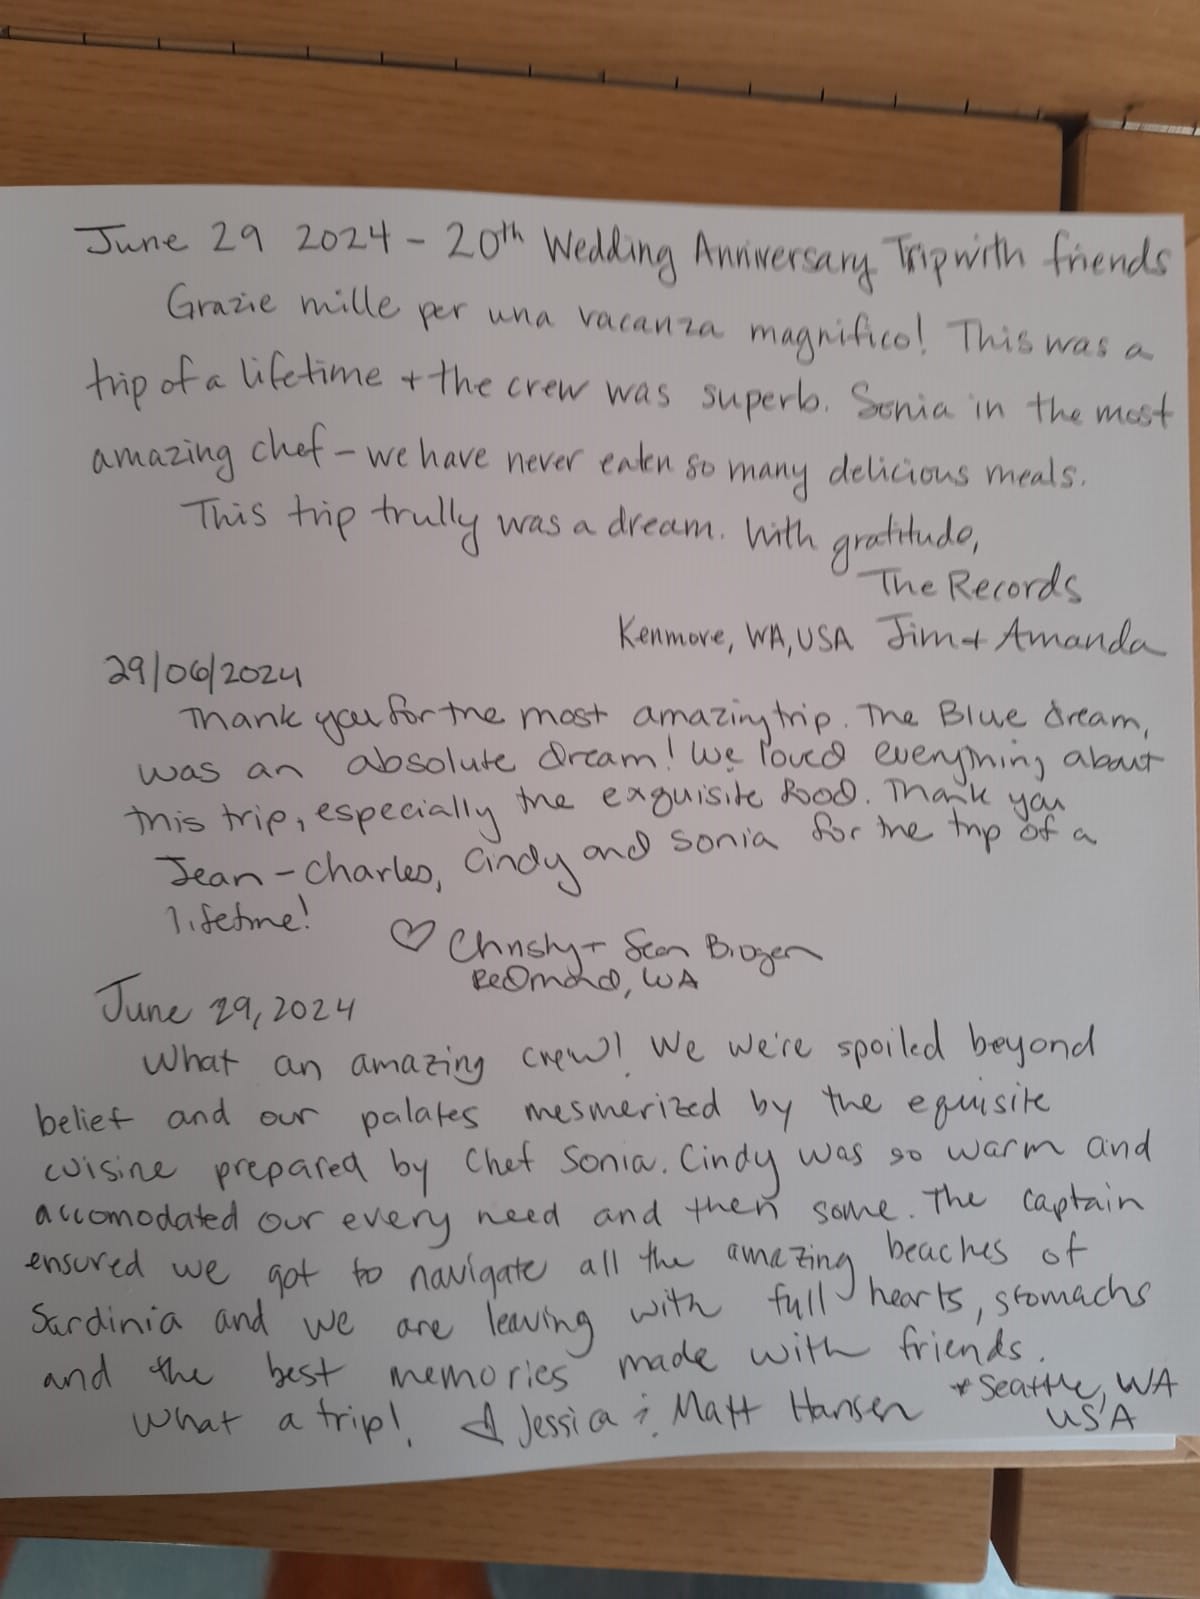 June 29 2024 - 20th Wedding Anniversary Trip with friends
Grazie mille per una vacanza magnifico! This was a
trip of a lifetime + the crew was superb. Sonia in the most
amazing chef - we have never eaten so many delicious meals.
This trip trully was a dream. With gratitude,
The Records
Kenmore, WA, USA Jim + Amanda
29/06/2024
Thank you for the most amazing trip. The Blue dream,
was an absolute dream! We loved everything about
this trip, especially the exquisite food. Thank you
Jean-Charles, Cindy and Sonia for the trip of a
lifetime!
♡ Christy + Sean Brogen
Redmond, WA
June 29, 2024
What an amazing crew! We were spoiled beyond
belief and our palates mesmerized by the equisite
cuisine prepared by Chef Sonia. Cindy was so warm and
accomodated our every need and then some. The captain
ensured we got to navigate all the amazing beaches of
Sardinia and we are leaving with full hearts, stomachs
and the best memories made with friends.
What a trip! Jessica & Matt Hansen *Seattle, WA
USA